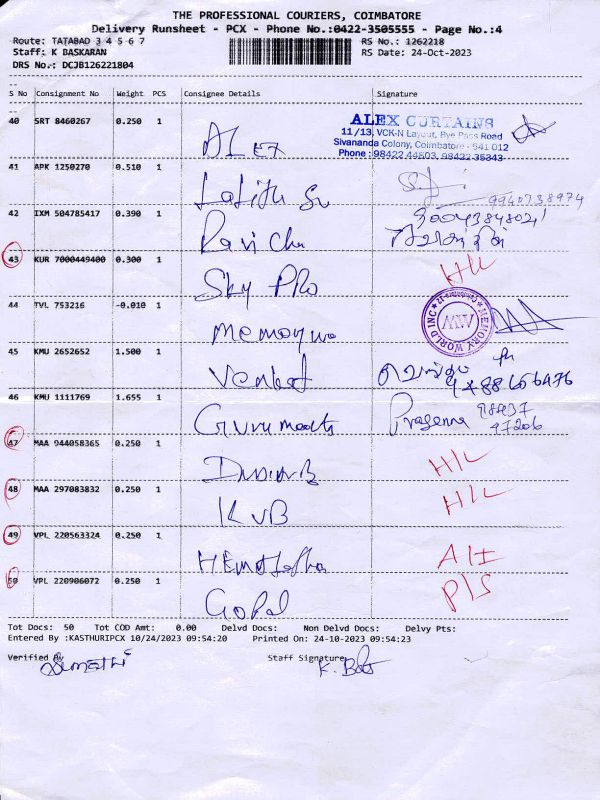 THE PROFESSIONAL COURIERS, COIMBATORE
Delivery Runsheet - PCX - Phone No.:0422-3505555 - Page No.:4
Route: TATABAD 3 4 5 6 7 RS No.: 1262218
Staff: K BASKARAN RS Date: 24-Oct-2023
DRS No.: DCJB126221804
S No Consignment No Weight PCS Consignee Details Signature
40 SRT 8460267 0.250 1 ALEX
ALEX CURTAINS
11/13, VCK-N Layout, Bye Pass Road
Sivananda Colony, Coimbatore - 541 012
Phone : 98422 44803, 98422 35343
41 APK 1250270 0.510 1 9940738974
42 IXM 504785417 0.390 1 Ravi Chu
43 KUR 7000449400 0.300 1 Sky PRO H/L
44 TVL 753216 -0.010 1 Memory wo
MEMORY WORLD INC
MW
45 KMU 2652652 1.500 1 Venkat
46 KMU 1111769 1.655 1 Prasanna 98437
97206
47 MAA 944058365 0.250 1 H/L
48 MAA 297083832 0.250 1 KVB H/L
49 VPL 220563324 0.250 1 A/I
50 VPL 220906072 0.250 1 Gopal P/S
Tot Docs: 50 Tot COD Amt: 0.00 Delvd Docs: Non Delvd Docs: Delvy Pts:
Entered By :KASTHURIPCX 10/24/2023 09:54:20 Printed On: 24-10-2023 09:54:23
Verified By Staff Signature